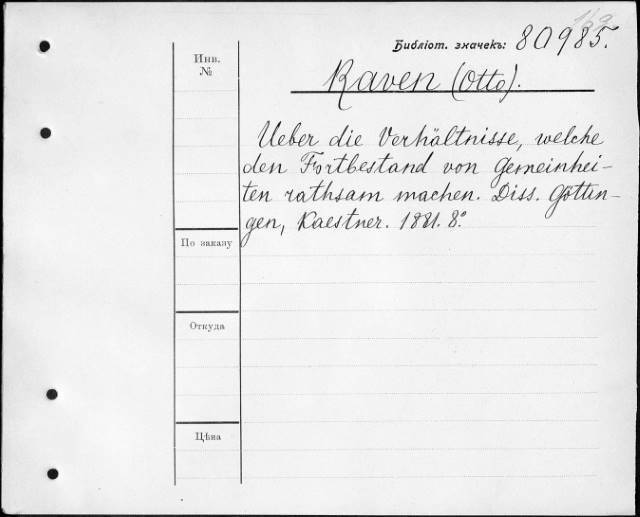 Библіот. значекъ: 80985.
Инв.
№
Raven (Otto).
Ueber die Verhältnisse, welche
den Fortbestand von Gemeinhei-
ten rathsam machen. Diss. Göttin-
gen, Kaestner. 1881. 8º
По заказу
Откуда
Цѣна